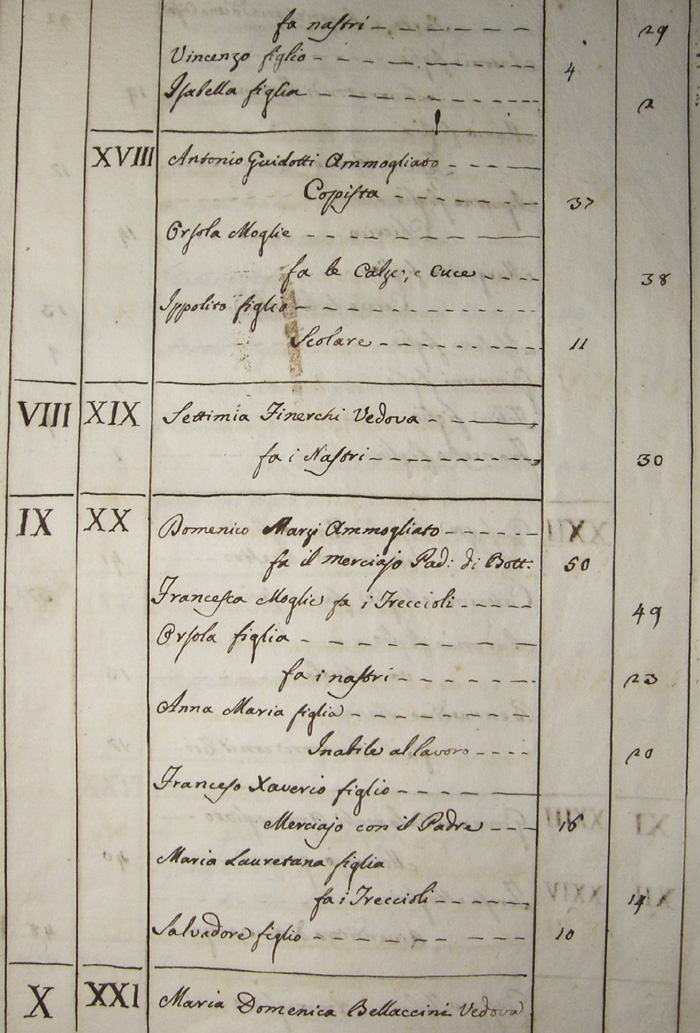 fa nastri 29
Vincenzo figlio 4
Isabella figlia 2
XVIII Antonio Guidotti Ammogliato
Copista 37
Orsola Moglie
fa le Calze, e cuce 38
Ippolito figlio
Scolare 11
VIII XIX Settimia Finerchi Vedova
fa i Nastri 30
IX XX Domenico Marzi Ammogliato
fa il merciajo Pad: di Bott: 50
Francesca Moglie fa i Treccioli 49
Orsola figlia
fa i nastri 23
Anna Maria figlia
Inabile al lavoro 20
Francesco Xaverio figlio
Merciajo con il Padre 16
Maria Lauretana figlia
fa i Treccioli 14
Salvadore figlio 10
X XXI Maria Domenica Bellaccini Vedova